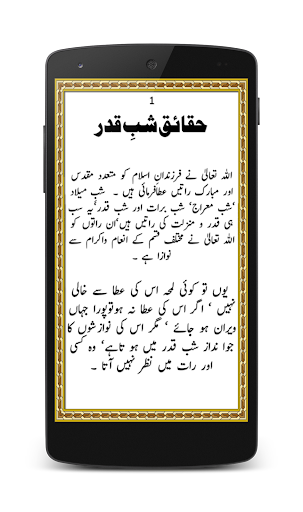 1
حقائق شبِ قدر
اللہ تعالیٰ نے فرزندانِ اسلام کو متعدد مقدس
اور مبارک راتیں عطا فرمائی ہیں ۔ شبِ میلاد
‘شبِ معراج’ شب برات اور شب قدر’یہ سب
ہی قدر و منزلت کی راتیں ہیں’ان راتوں کو
اللہ تعالیٰ نے مختلف قسم کے انعام واکرام سے
نوازا ہے ۔
یوں تو کوئی لمحہ اس کی عطا سے خالی
نہیں ’ اگر اس کی عطا نہ ہوتوپورا جہاں
ویران ہو جائے ’ مگر اس کی نوازشوں کا
جوا نداز شب قدر میں ہو تاہے’ وہ کسی
اور رات میں نظر نہیں آتا ۔